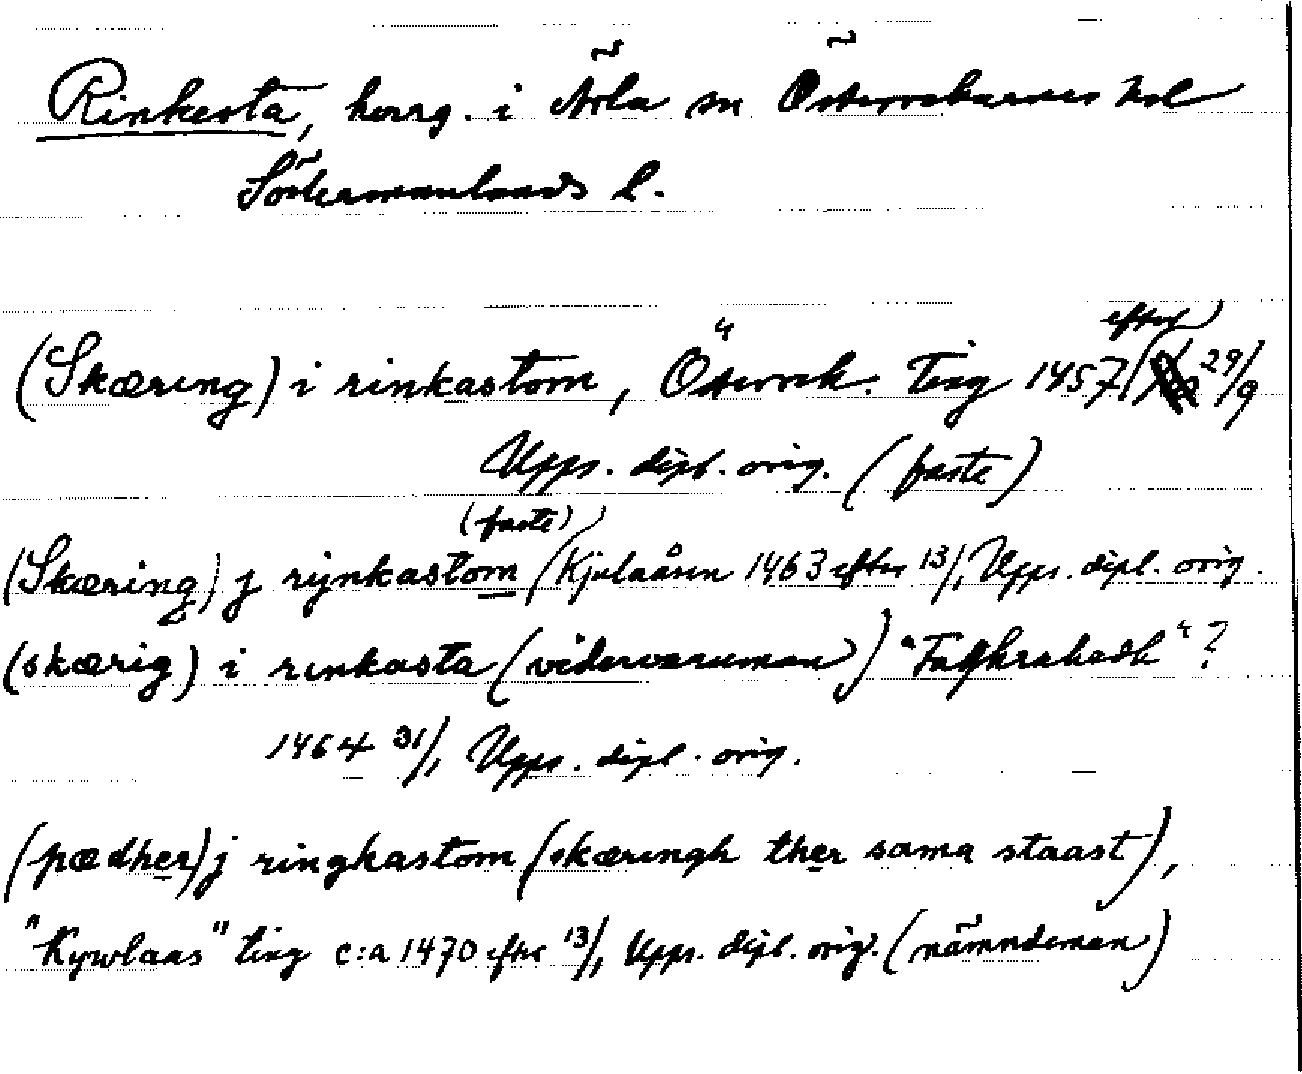 Rinkesta, herrg. i Ärla sn Österrekarnes hd
Södermanlands l.
(Skæring) i rinkastom, Österrek. Ting 1457 (efter 29/9)
Upps. dipl. orig. (faste)
(Skæring) j rijnkastom (faste) (Kjulaåsen 1463 efter 13/1, Upps. dipl. orig.
(skærig) i rinkasta (vidervaruman) ?
1464 31/1 Upps. dipl. orig.
(pædher) j ringkastom (skæringh ther sama staast),
"Kywlaas" ting c:a 1470 efter 13/1, Upps. dipl. orig. (nämndeman)